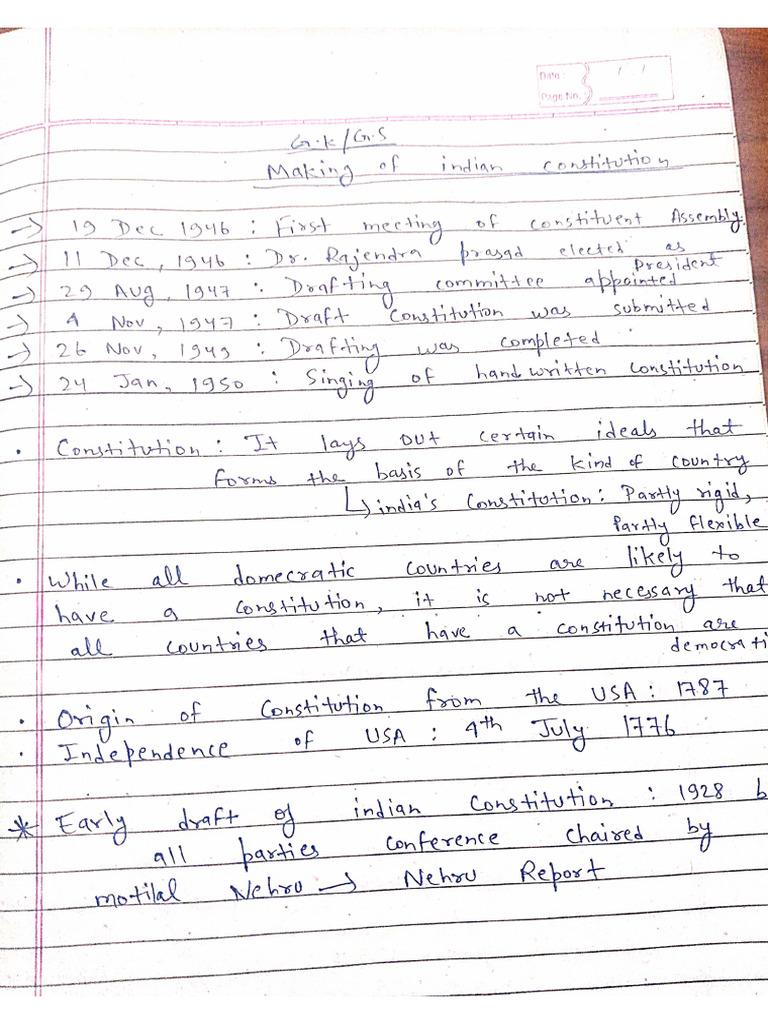 Date :
Page No.
G.K/G.S
Making of indian constitution
→ 19 Dec 1946 : First meeting of constituent Assembly.
→ 11 Dec, 1946 : Dr. Rajendra prasad elected as President
→ 29 Aug, 1947 : Drafting committee appointed
→ 4 Nov, 1947 : Draft Constitution was submitted
→ 26 Nov, 1949 : Drafting was completed
→ 24 Jan, 1950 : Singing of handwritten constitution
• Constitution : It lays out certain ideals that
forms the basis of the kind of country
↳ india's Constitution : Partly rigid,
Partly flexible
• While all domecratic countries are likely to
have a constitution, it is not necessary that
all countries that have a constitution are
democrati
• Origin of Constitution from the USA : 1787
• Independence of USA : 4th July 1776
* Early draft of indian Constitution : 1928 b
all parties conference chaired by
motilal Nehru → Nehru Report